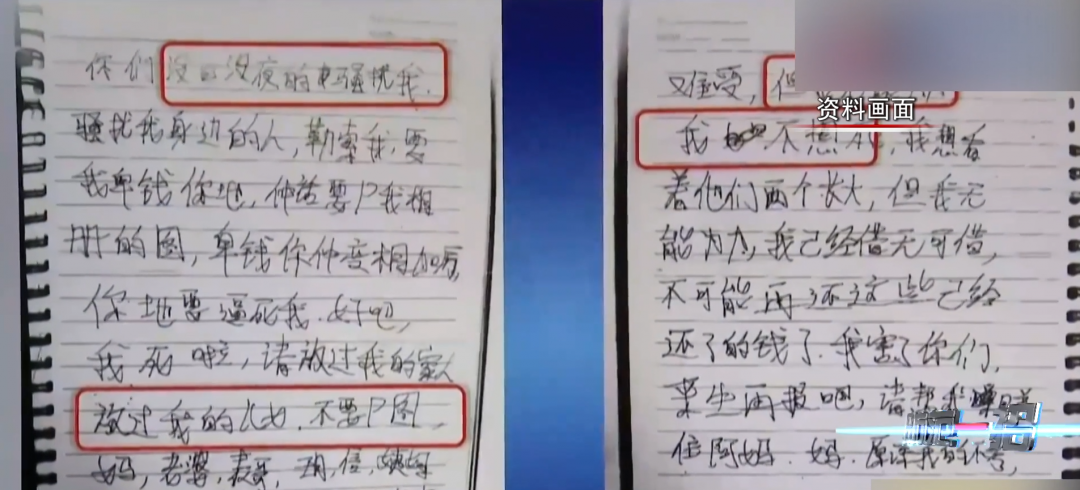 你们没日没夜的骚扰我.
骚扰我身边的人,勒索我,要
我卑钱你地,仲话要P我相
册的图,卑钱你仲变相加厉,
你地要逼死我.好吧,
我死啦,请放过我的家人
放过我的儿女.不要P图,
妈,老婆,
资料画面
又难受,但
我 不想 我想看
着他们两个长大,但我无
能为力,我已经借无可借,
不可能再还这些已经
还了的钱了.我害了你们,
来生再报吧,请帮我
住阿妈.妈.原谅我的不孝,